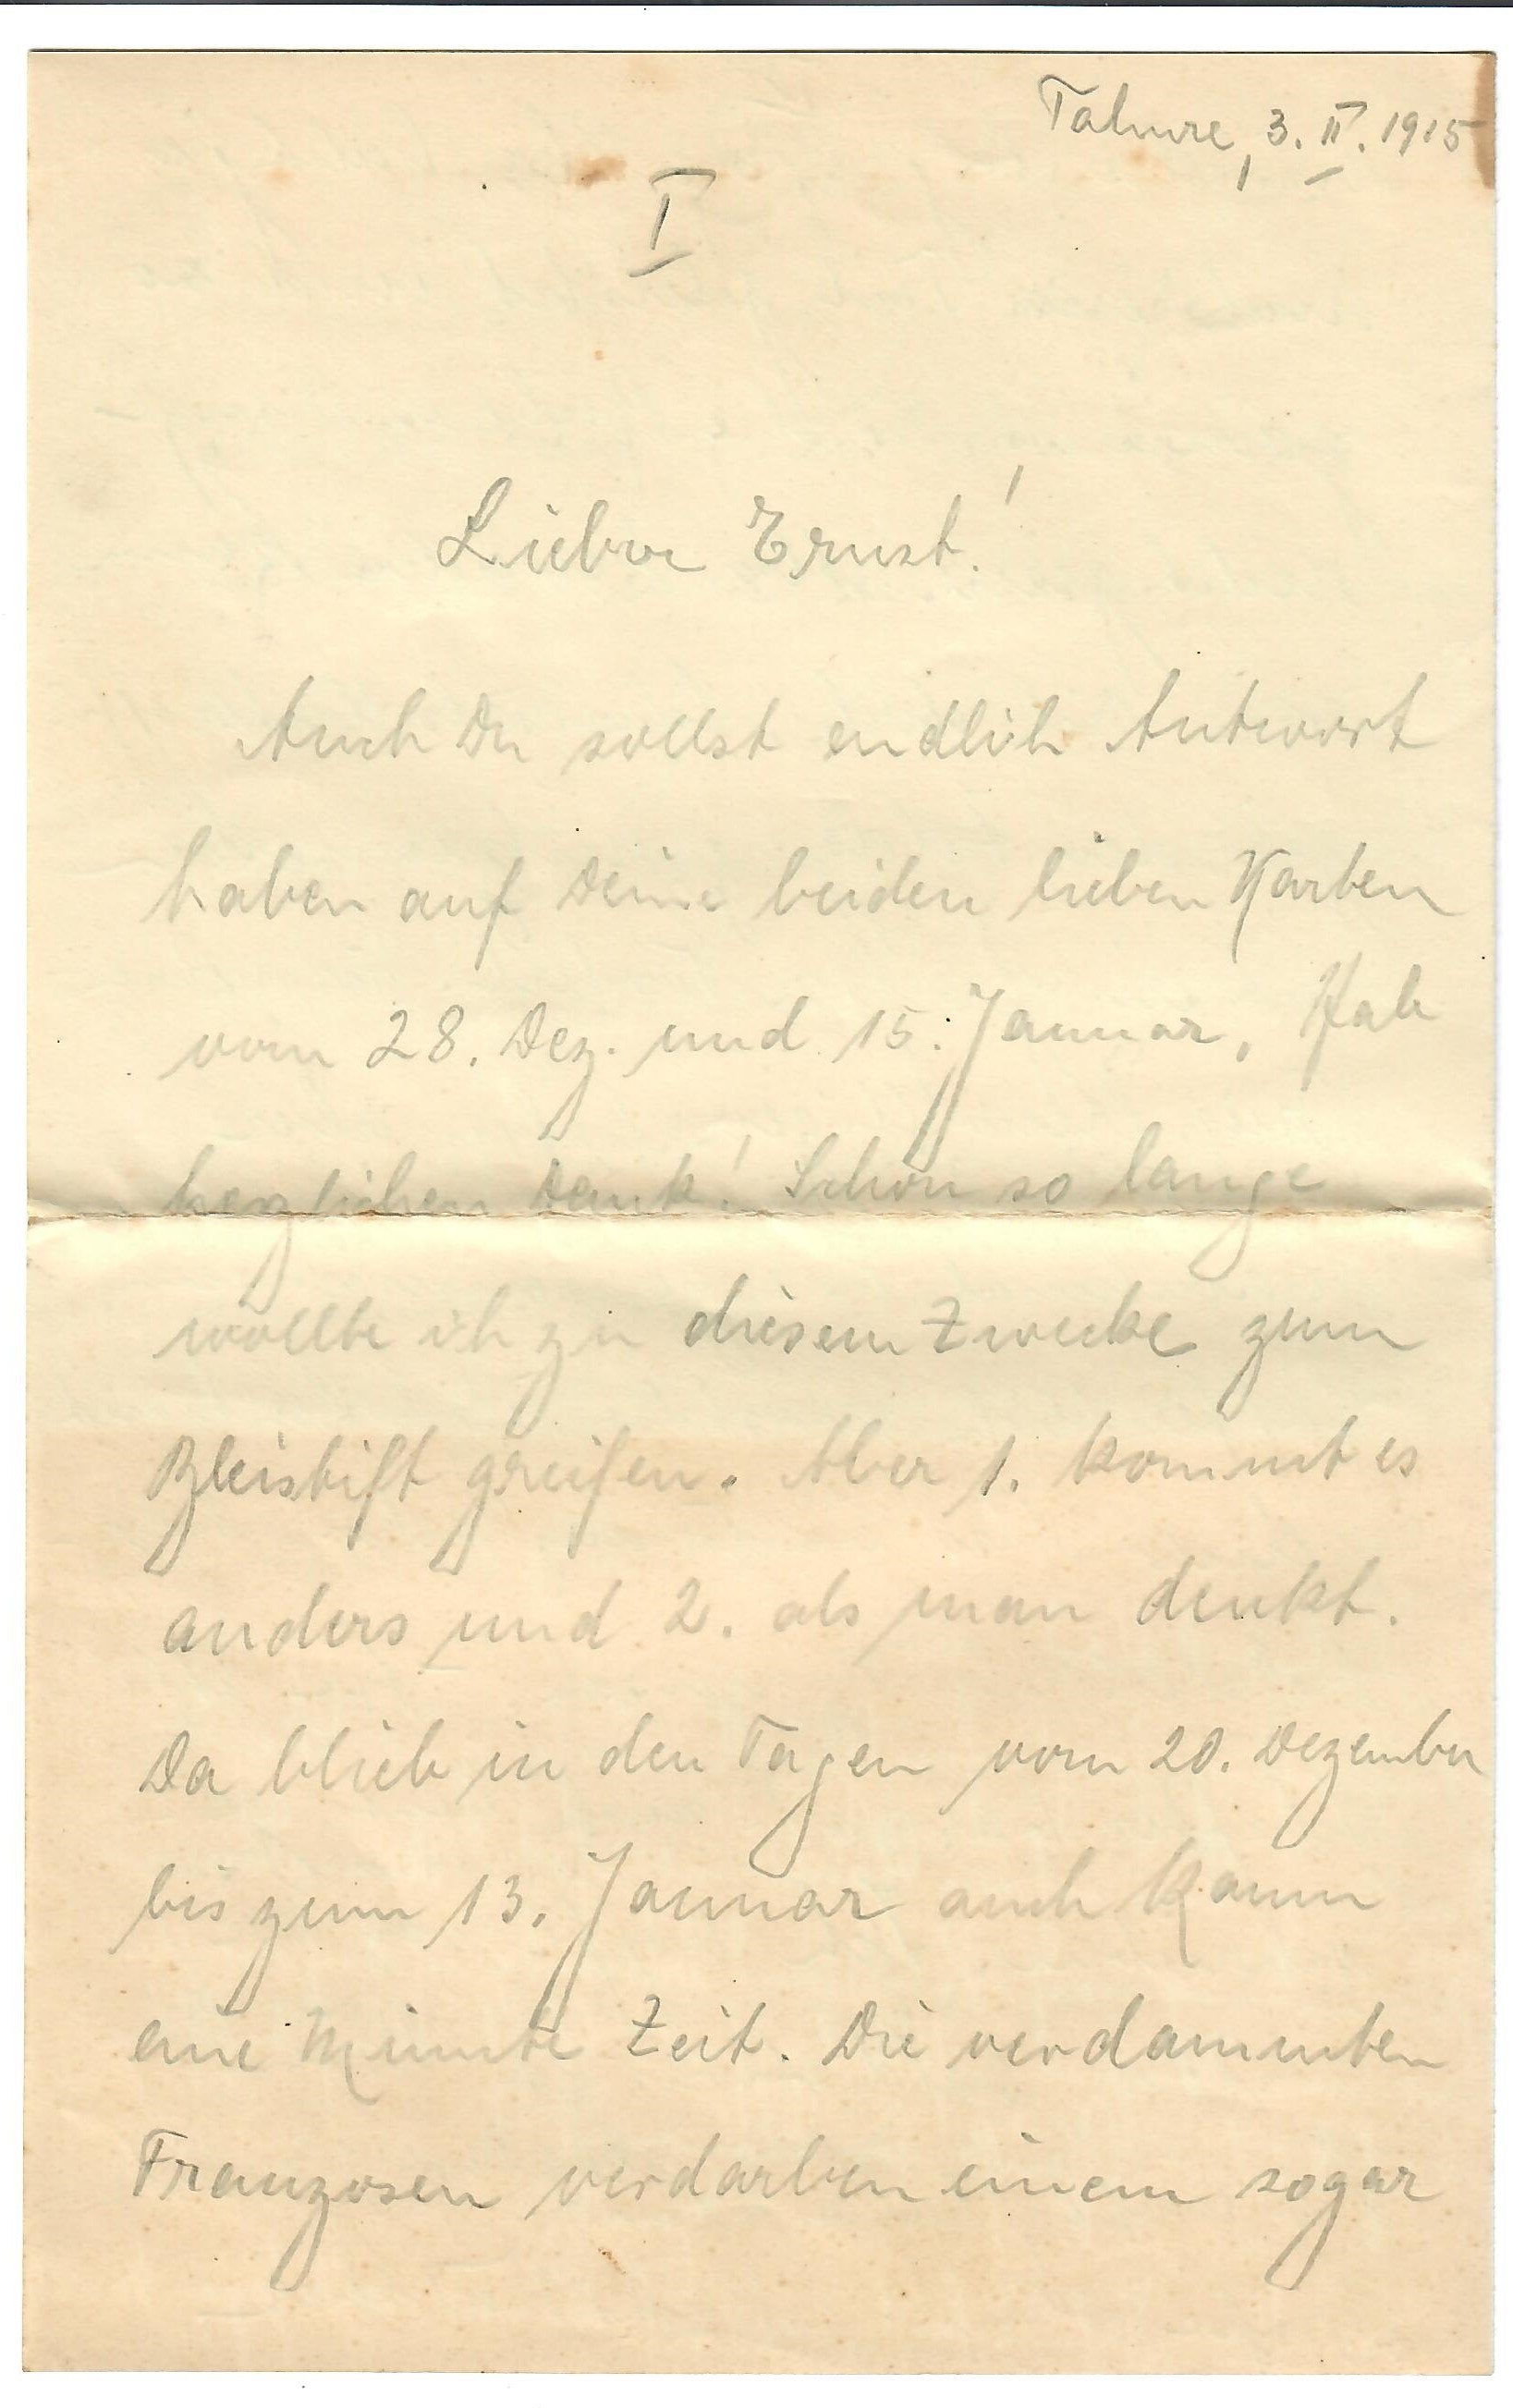 Tahure, 3. II. 1915
I
Lieber Ernst!
Auch Du sollst endlich Antwort
haben auf Deine beiden lieben Karten
vom 28. Dez. und 15. Januar, Hab
herzlichen Dank! Schon so lange
wollte ich zu diesem Zwecke zum
Bleistift greifen. Aber 1. kommt es
anders und 2. als man denkt.
Da blieb in den Tagen vom 20. Dezember
bis zum 13. Januar auch kaum
eine Minute Zeit. Die verdammten
Franzosen verdarben einem sogar